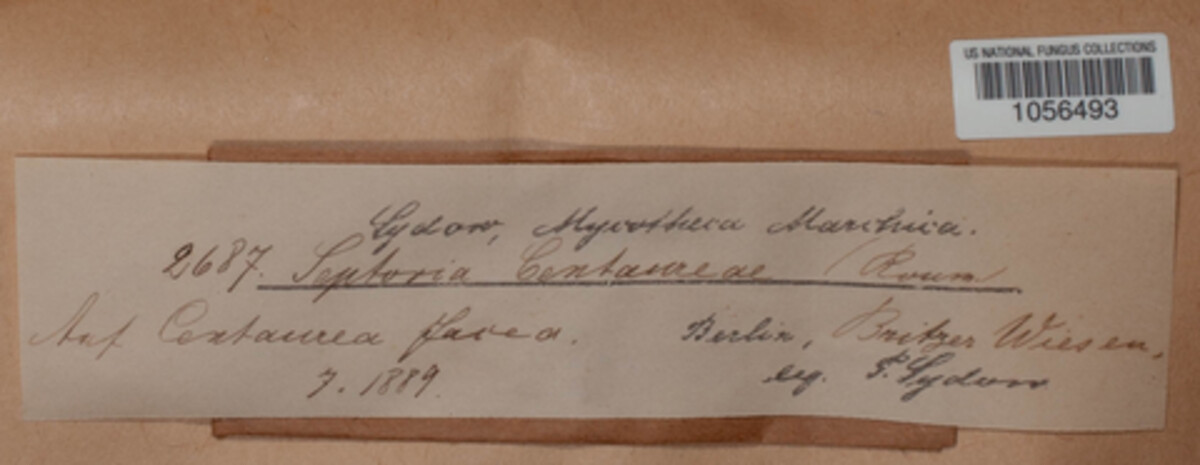 US NATIONAL FUNGUS COLLECTIONS
1056493
Sydow, Mycotheca Marchica.
2687. Septoria Centaureae (Roum
Auf Centaurea Jacea. Berlin, Britzer Wiesen,
7. 1889. leg. P. Sydow